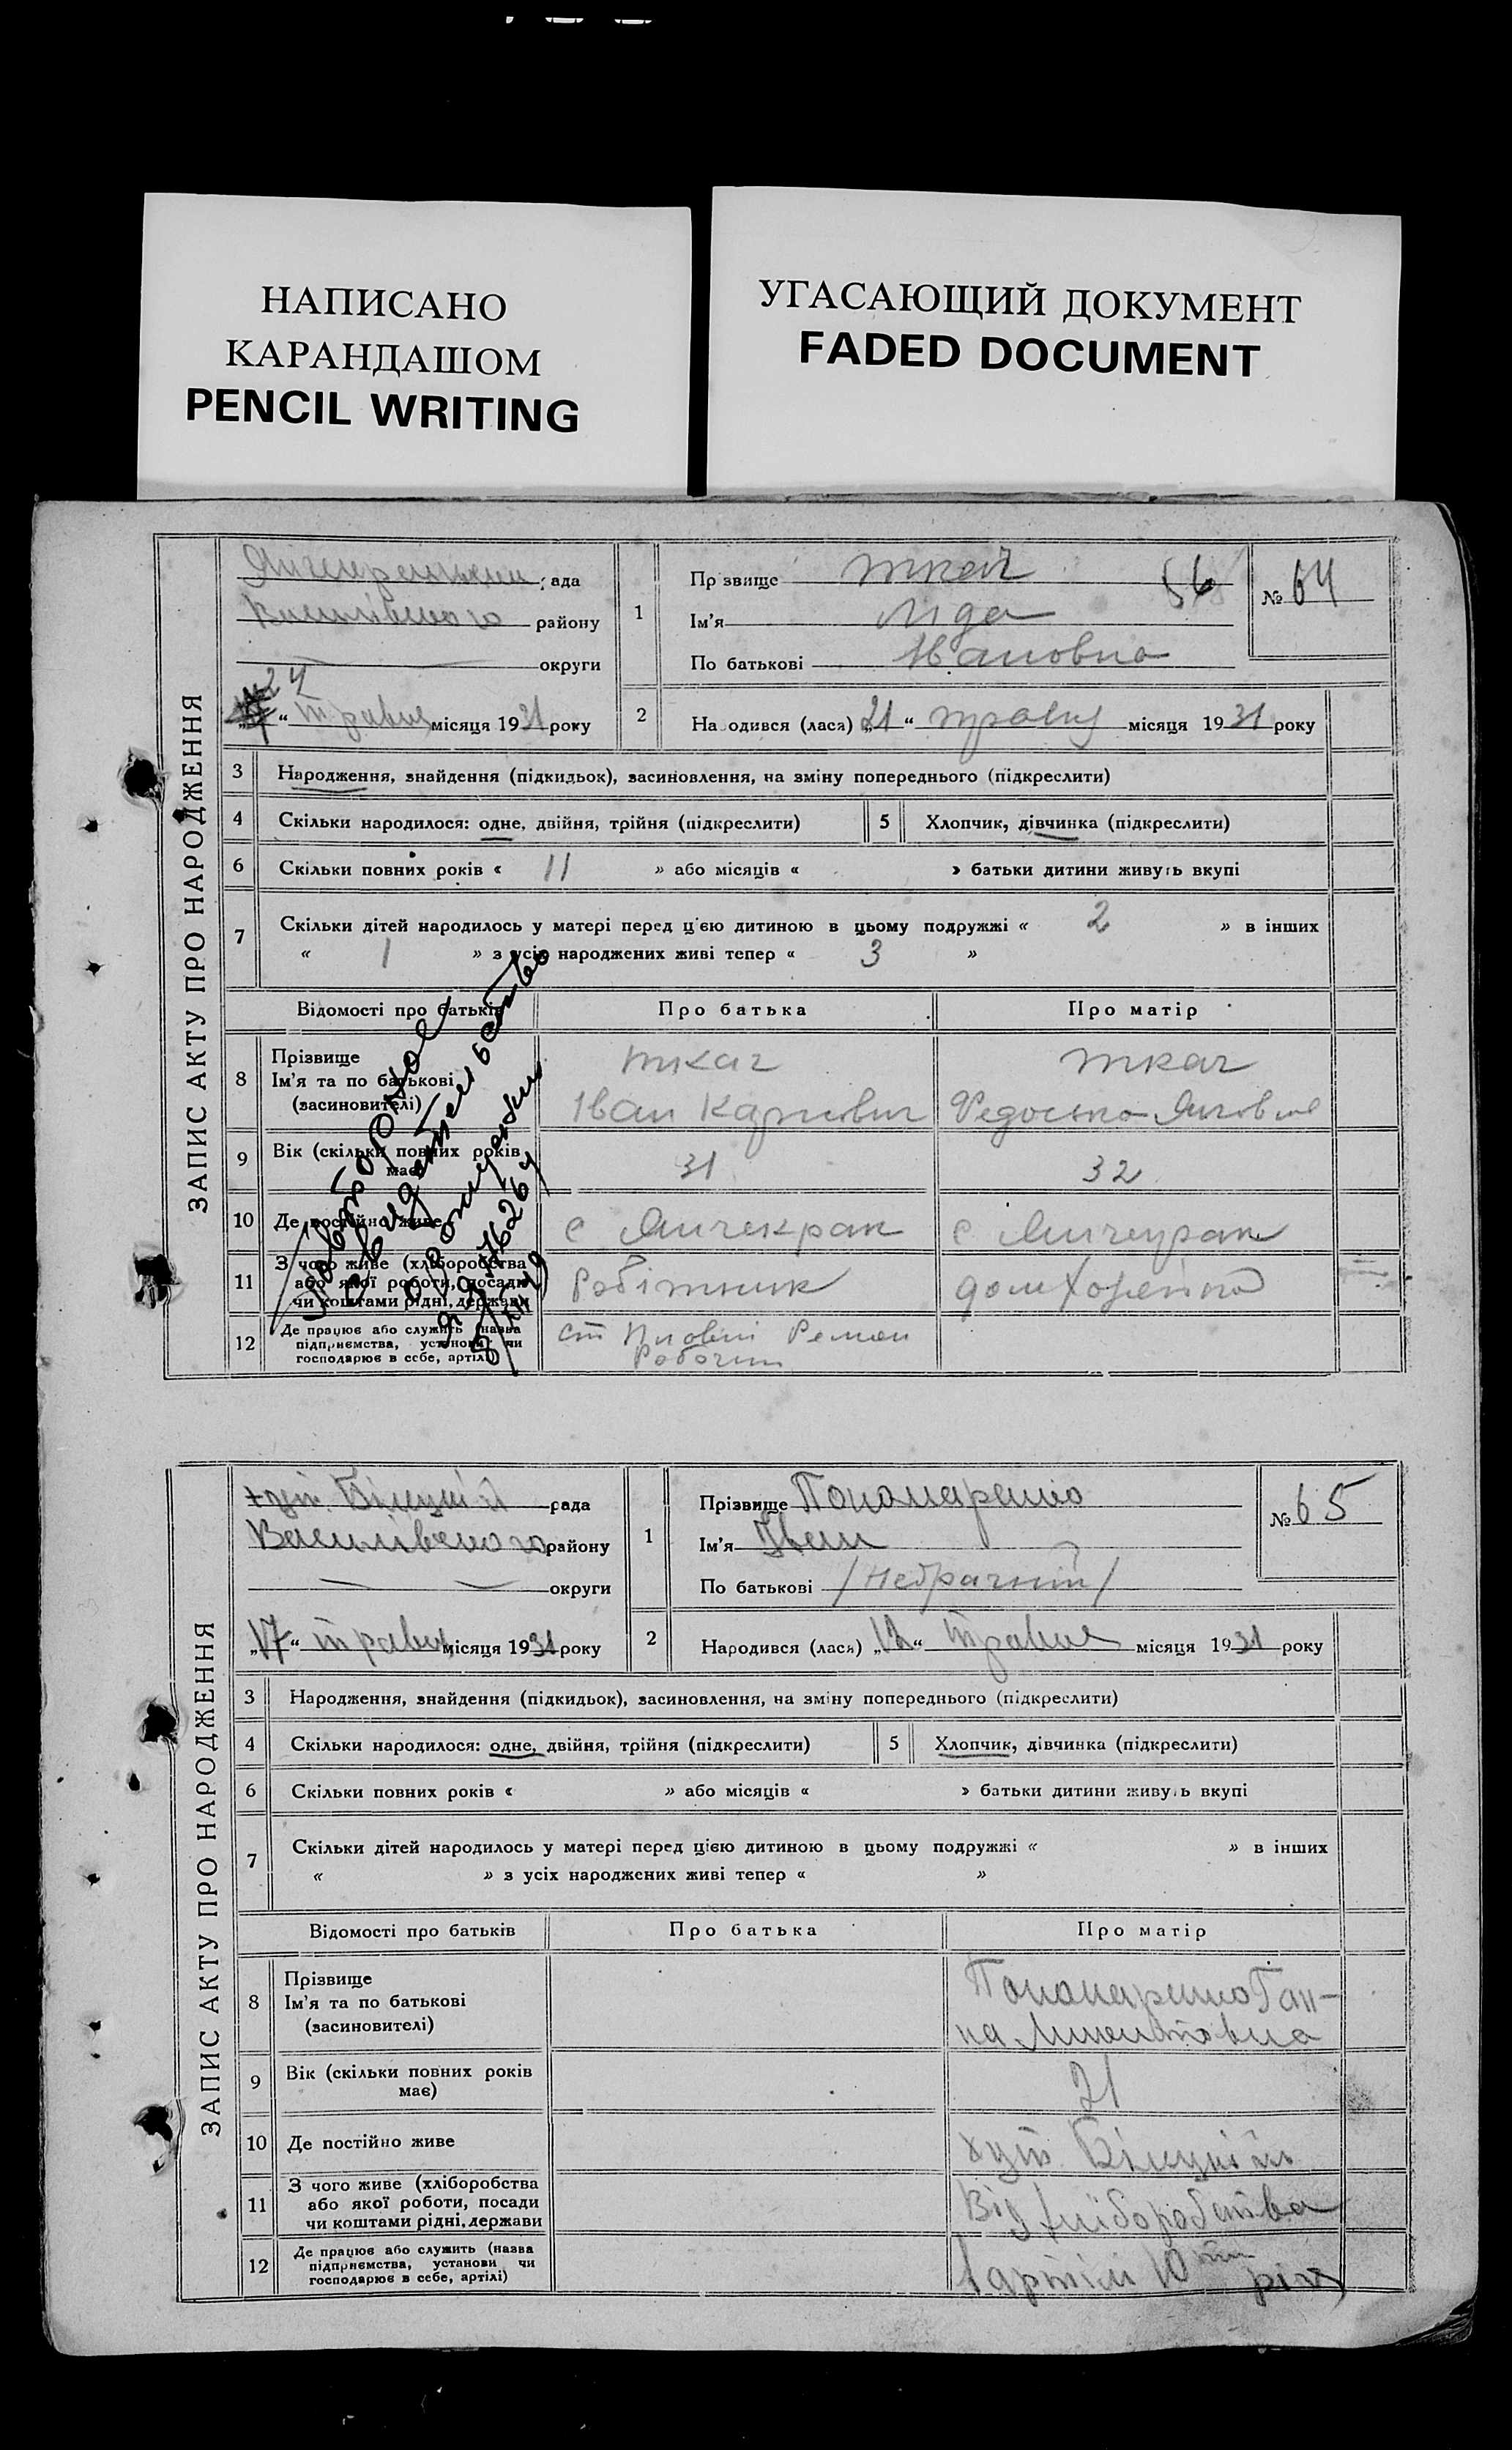 НАПИСАНО
КАРАНДАШОМ
PENCIL WRITING
УГАСАЮЩИЙ ДОКУМЕНТ
FADED DOCUMENT
ЗАПИС АКТУ ПРО НАРОДЖЕННЯ
рада
Василівського району
округи
24 " травня місяця 1931 року
1
Прізвище Ткач 56
Ім'я Ліда
По батькові Івановна
№ 64
2
Народився (лася) „21 " травня місяця 1931 року
3 Народження, знайдення (підкидьок), засиновлення, на зміну попереднього (підкреслити)
4 Скільки народилося: одне, двійня, трійня (підкреслити)
5 Хлопчик, дівчинка (підкреслити)
6 Скільки повних років « 11 » або місяців « » батьки дитини живуть вкупі
7 Скільки дітей народилось у матері перед цією дитиною в цьому подружжі « 2 » в інших
« 1 » з усіх народжених живі тепер « 3 »
Відомості про батьків
Про батька
Про матір
8 Прізвище
Ім'я та по батькові
(засновителі)
Ткач
Іван Карпович
Ткач
Федоська
9 Вік (скільки повних років
має)
31
32
10 Де постійно живе
с Янчекрак
с Янчекрак
11 З чого живе (хліборобства
або якої роботи, посади
чи коштами рідні, держави
Робітник
12 Де працює або служить (назва
підприємства, установи чи
господарює в себе, артілі)
ст
Рабочим
Повторное
свидетельство
о рождении
ЗАПИС АКТУ ПРО НАРОДЖЕННЯ
рада
Василівського району
округи
„17 " травня місяця 1931 року
1
Прізвище Пономаренко
Ім'я Іван
По батькові /Небрачний/
№ 65
2
Народився (лася) „13 " травня місяця 1931 року
3 Народження, знайдення (підкидьок), засиновлення, на зміну попереднього (підкреслити)
4 Скільки народилося: одне, двійня, трійня (підкреслити)
5 Хлопчик, дівчинка (підкреслити)
6 Скільки повних років « » або місяців « » батьки дитини живуть вкупі
7 Скільки дітей народилось у матері перед цією дитиною в цьому подружжі « » в інших
« » з усіх народжених живі тепер « »
Відомості про батьків
Про батька
Про матір
8 Прізвище
Ім'я та по батькові
(засиновителі)
Пономаренко Ган-
на
9 Вік (скільки повних років
має)
21
10 Де постійно живе
хут. Білецкій
11 З чого живе (хліборобства
або якої роботи, посади
чи коштами рідні, держави
Від хліборобства
12 Де працює або служить (назва
підприємства, установи чи
господарює в себе, артілі)
В артілі 10